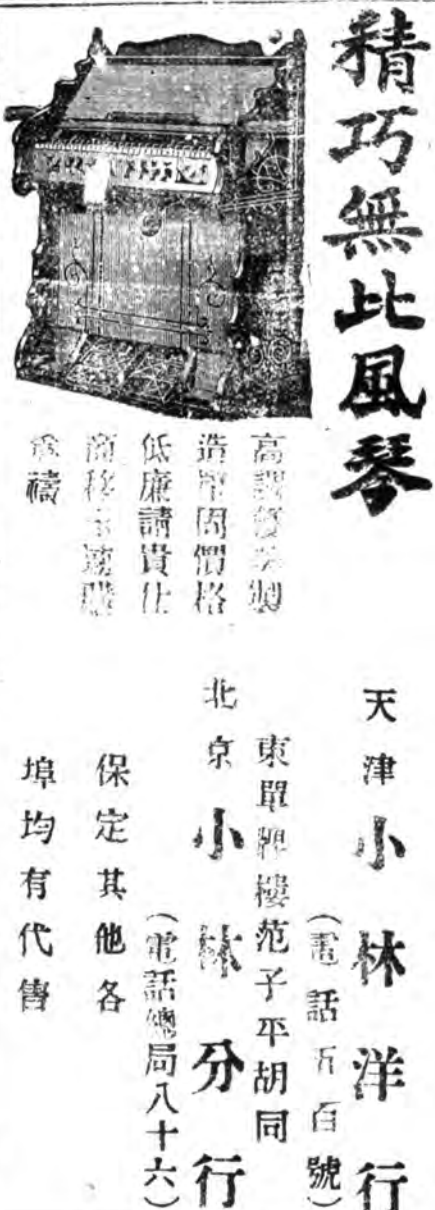 精巧無比風琴
高調優美製
造堅固價格
低廉請貴仕
商移玉海購
為禱
天津小林洋行
(電話五百號)
東單牌樓范子平胡同
北京小林分行
(電話總局八十六)
保定其他各
埠均有代售